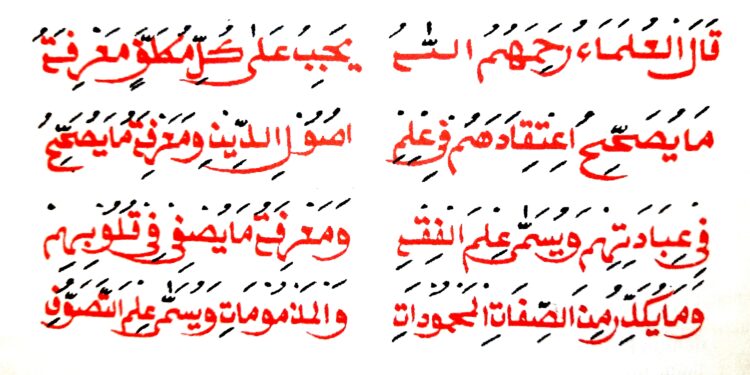 قَالَ الْعُلَمَاءُ رَحِمَهُمُ اللّٰهُ يَجِبُ عَلَى كُلِّ مُكَلَّفٍ مَعْرِفَةُ
مَا يُصَحِّحُ اعْتِقَادَهُمْ فِي عِلْمِ اصُوْلِ الدِّيْنِ وَمَعْرِفَةُ مَا يُصَحِّحُ
فِي عِبَادَتِهِمْ وَيُسَمَّى عِلْمَ الْفِقْهِ وَمَعْرِفَةُ مَا يُصْفِي فِي قُلُوْبِهِمْ
وَمَا يُكَدِّرُ مِنَ الصِّفَاتِ الْمَحْمُوْدَاتِ وَالْمَذْمُوْمَاتِ وَيُسَمَّى عِلْمَ التَّصَوُّفِ